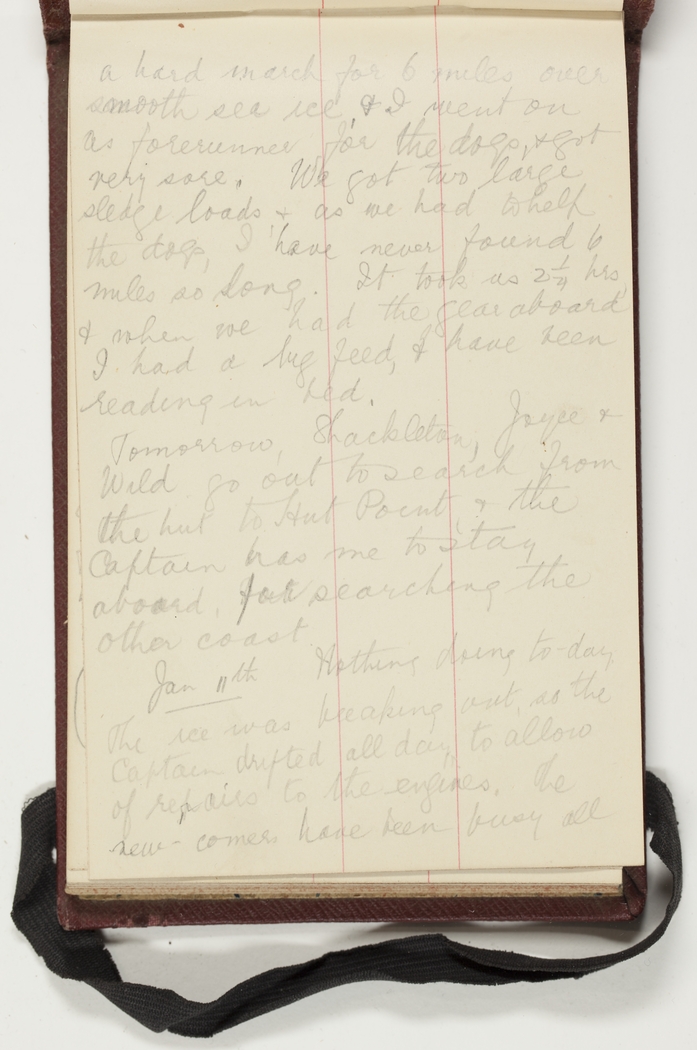 a hard march for 6 miles over
smooth sea ice, & I went on
as forerunner for the dogs, & got
very sore. We got two large
sledge loads & as we had to help
the dogs, I have never found 6
miles so long. It took us 2 1/4 hrs,
& when we had the gear aboard
I had a big feed, & have been
reading in bed.
Tomorrow, Shackleton, Joyce &
Wild go out to search from
the hut to Hut Point & the
Captain has me to stay
aboard, for searching the
other coast.
Jan 11th Nothing doing to-day
The ice was breaking out, so the
Captain drifted all day, to allow
of repairs to the engines. The
new-comers have been busy all